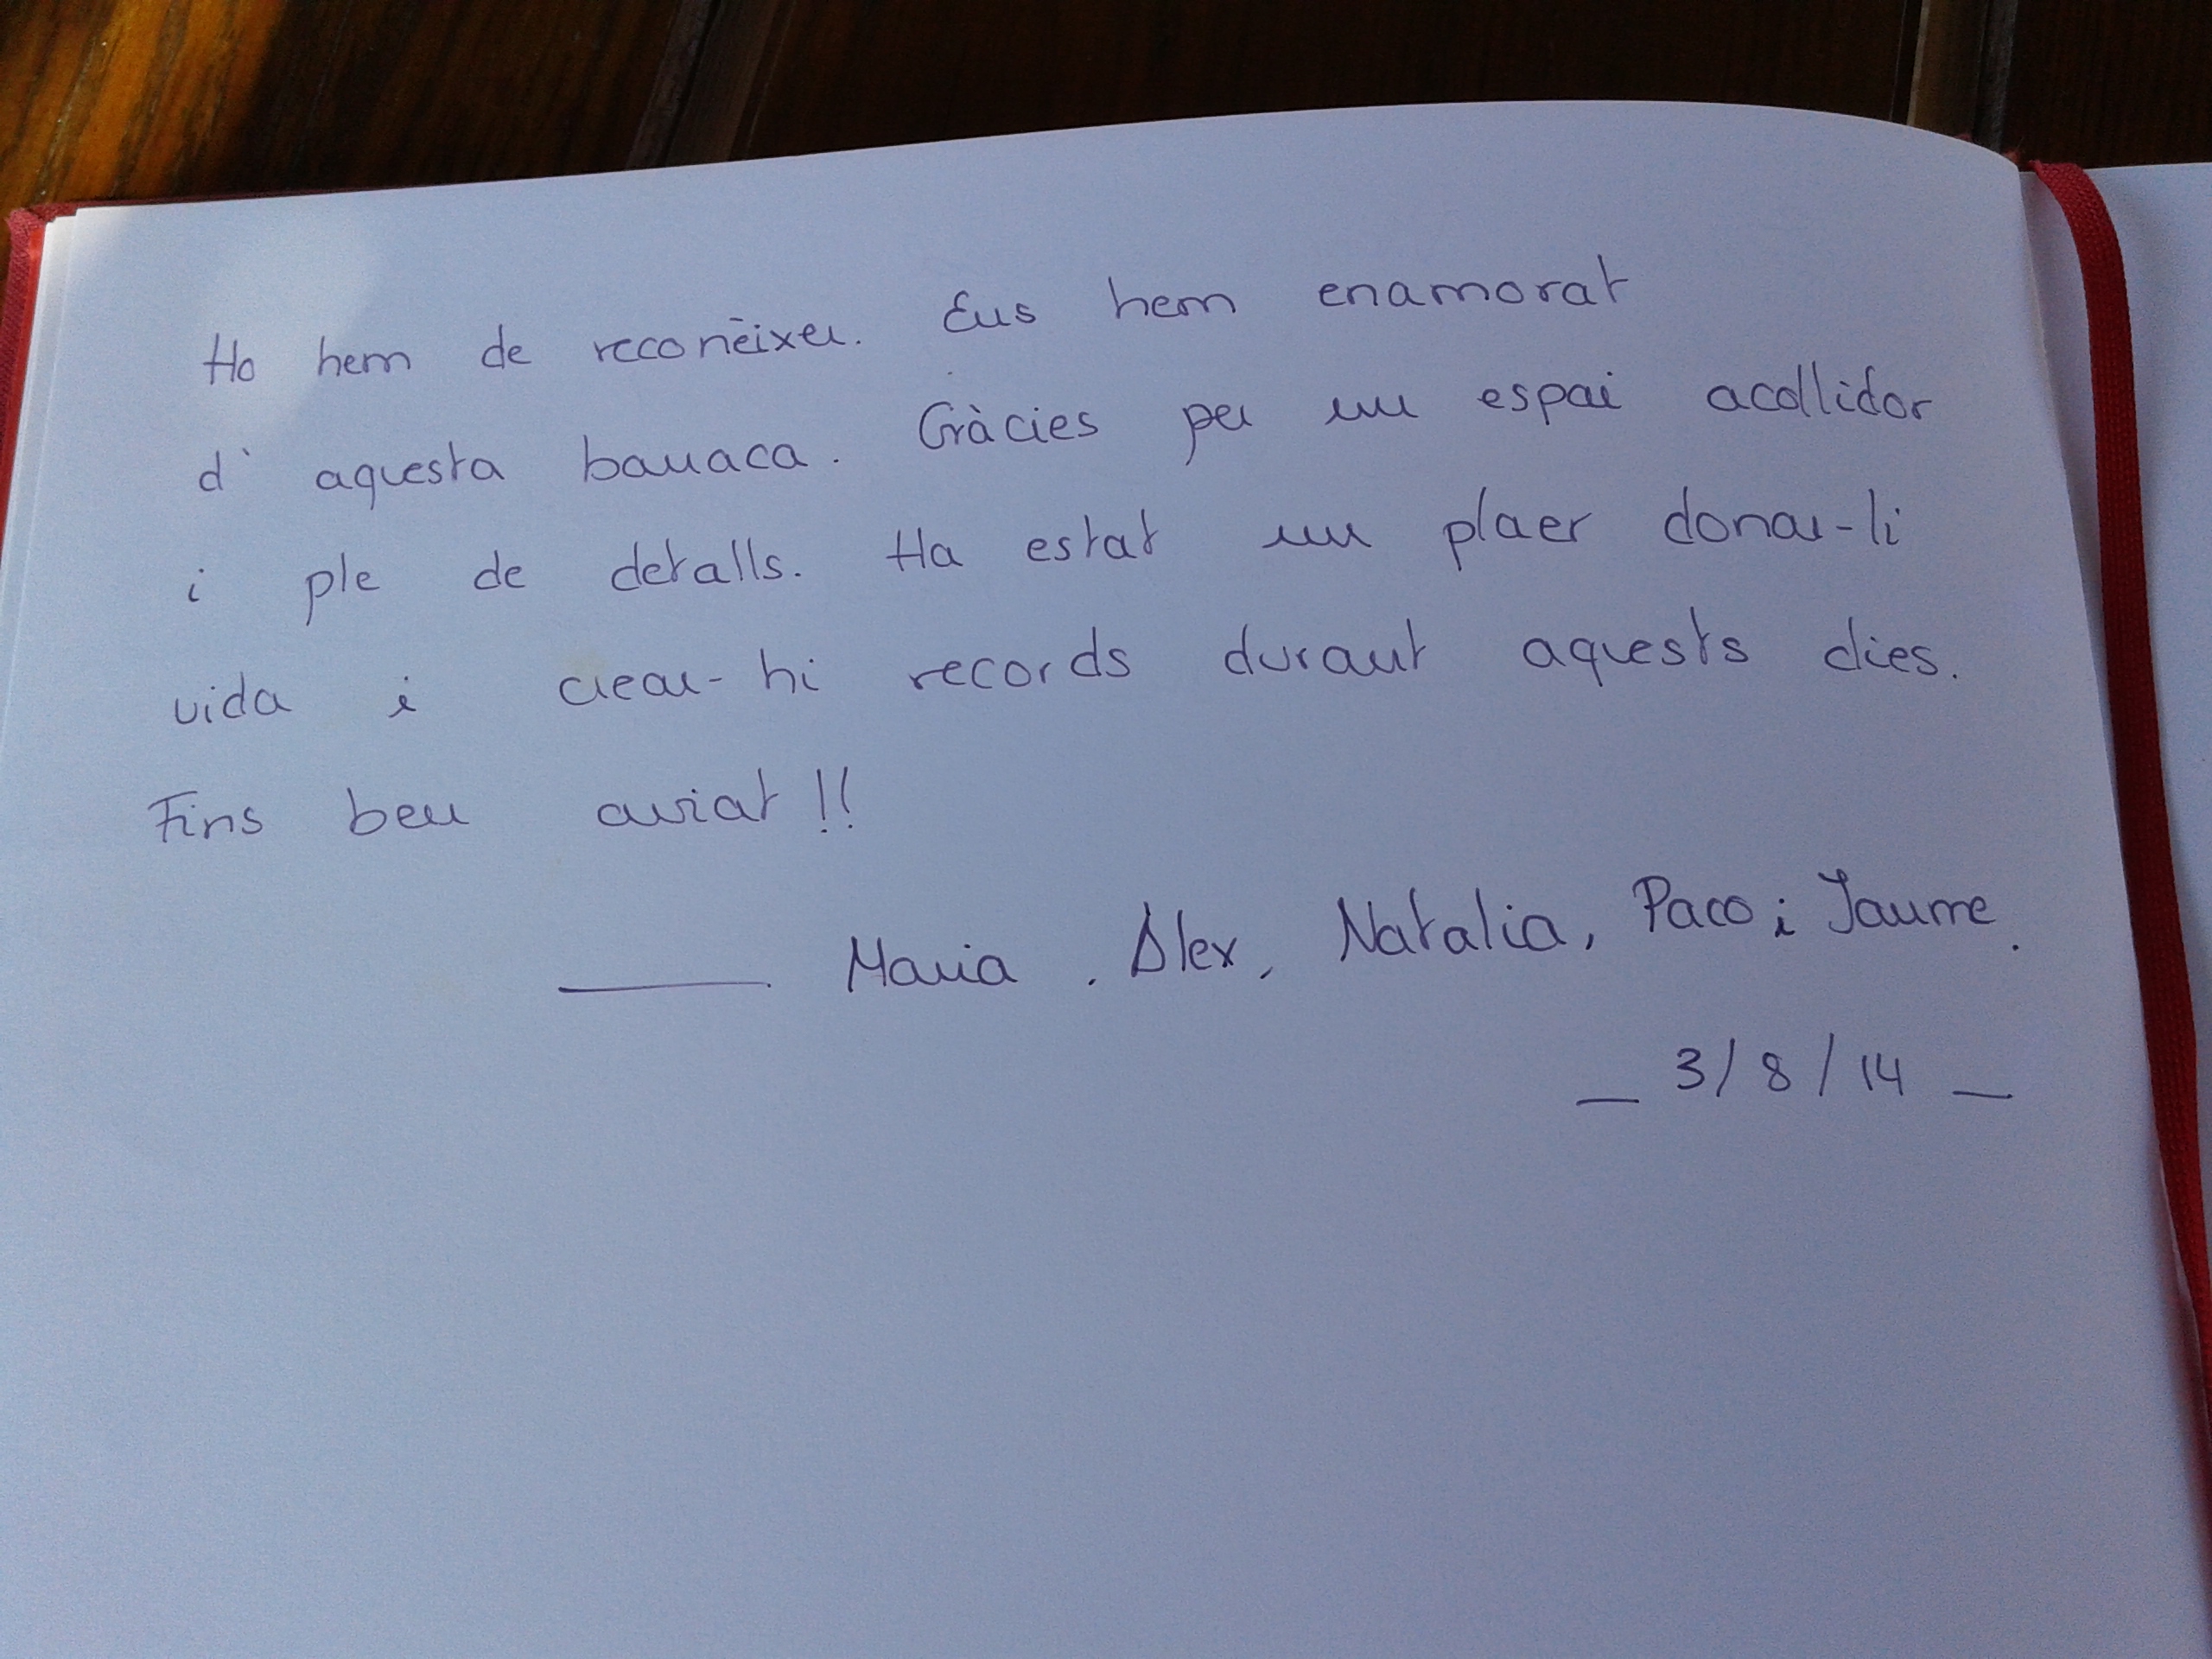 Ho hem de reconèixer. Ens hem enamorat
d'aquesta barraca. Gràcies per un espai acollidor
i ple de detalls. Ha estat un plaer donar-li
vida i crear-hi records durant aquests dies.
Fins ben aviat!!
Maria, Alex, Natalia, Paco i Jaume.
_ 3/8/14 _